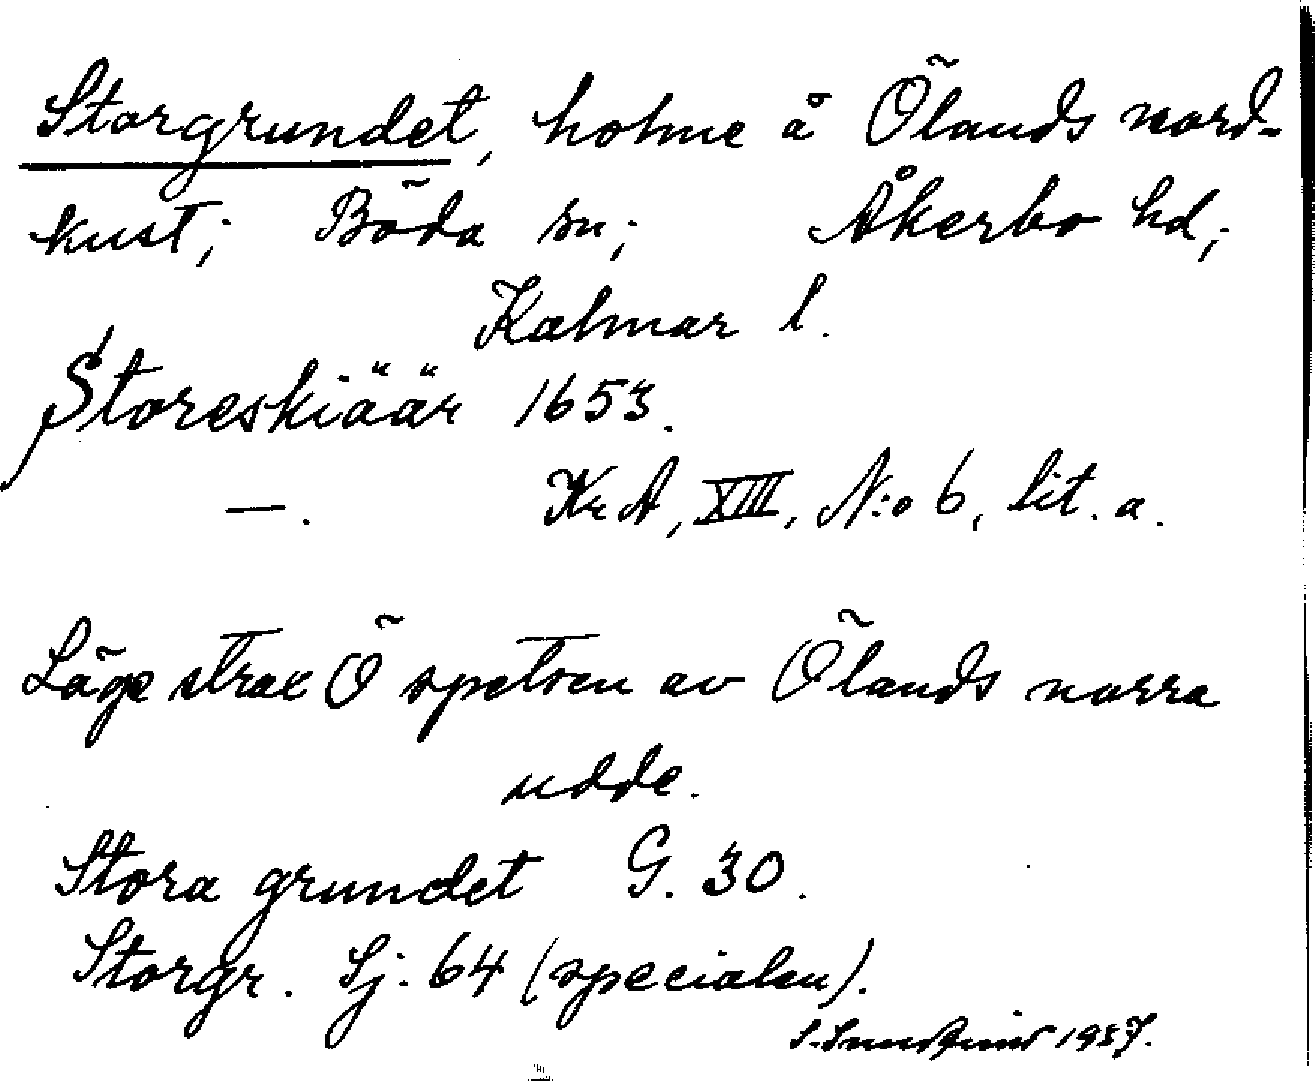 Storgrundet, holme å Ölands nord-
kust; Böda sn; Åkerbo hd;
Kalmar l.
Storeskiäär 1653.
—. KrA, XIII, N:o 6, lit. a.
Läge strax Ö spetsen av Ölands norra
udde.
Stora grundet G. 30.
Storgr. Sj. 64 (specialen).
S. 1937.